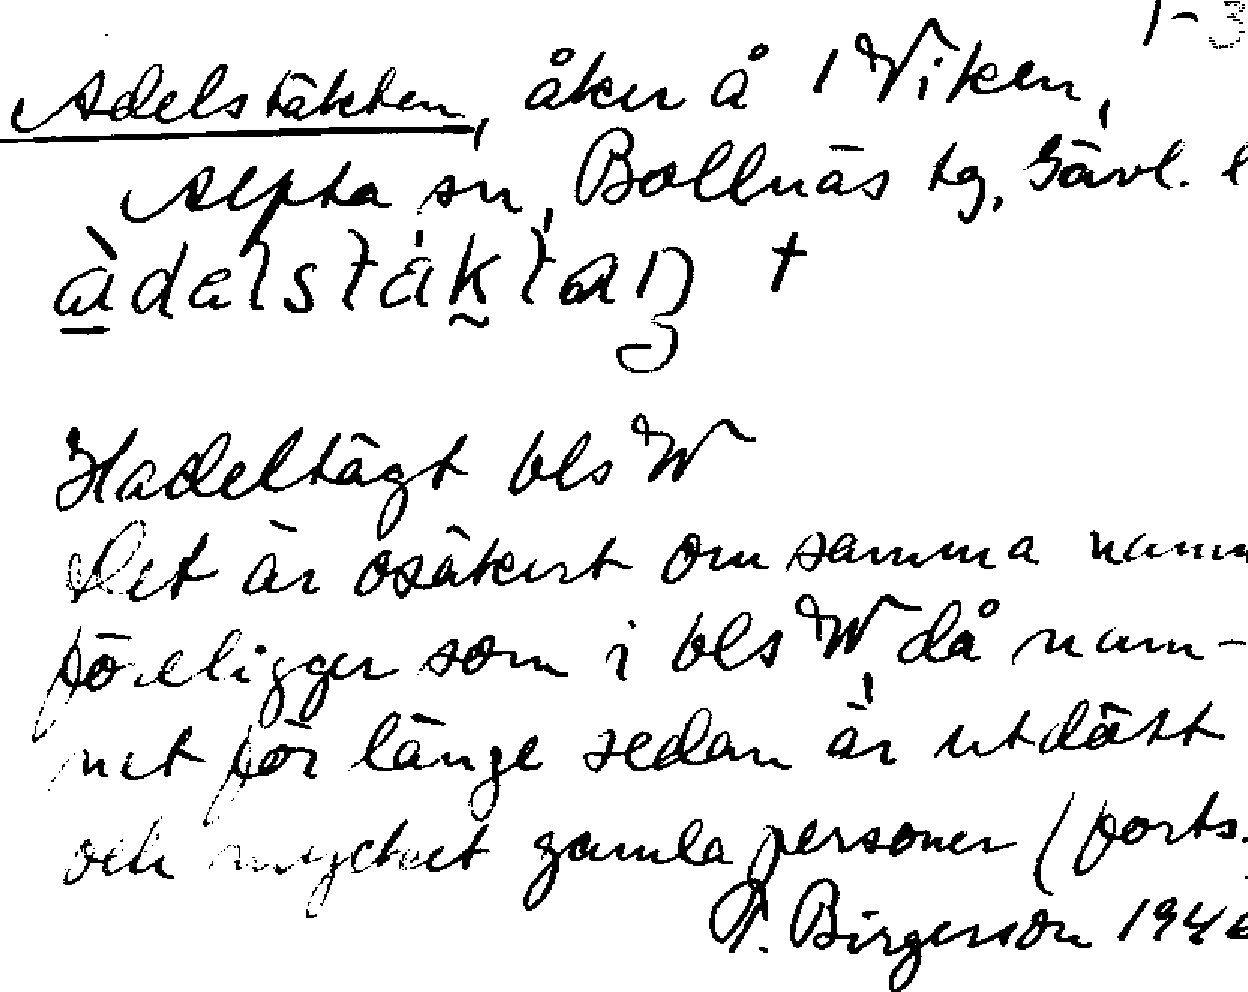 1-3
Adelstäkten, åker å 1 Viken,
Alfta sn, Bollnäs tg, Gävl. l
àdelstäktaŋ †
Hadeltägt bls W
Det är osäkert om samma namn
föreligger som i bls W, då nam-
net för länge sedan är utdött
och mycket gamla personer (forts.
T. Birgersson 194